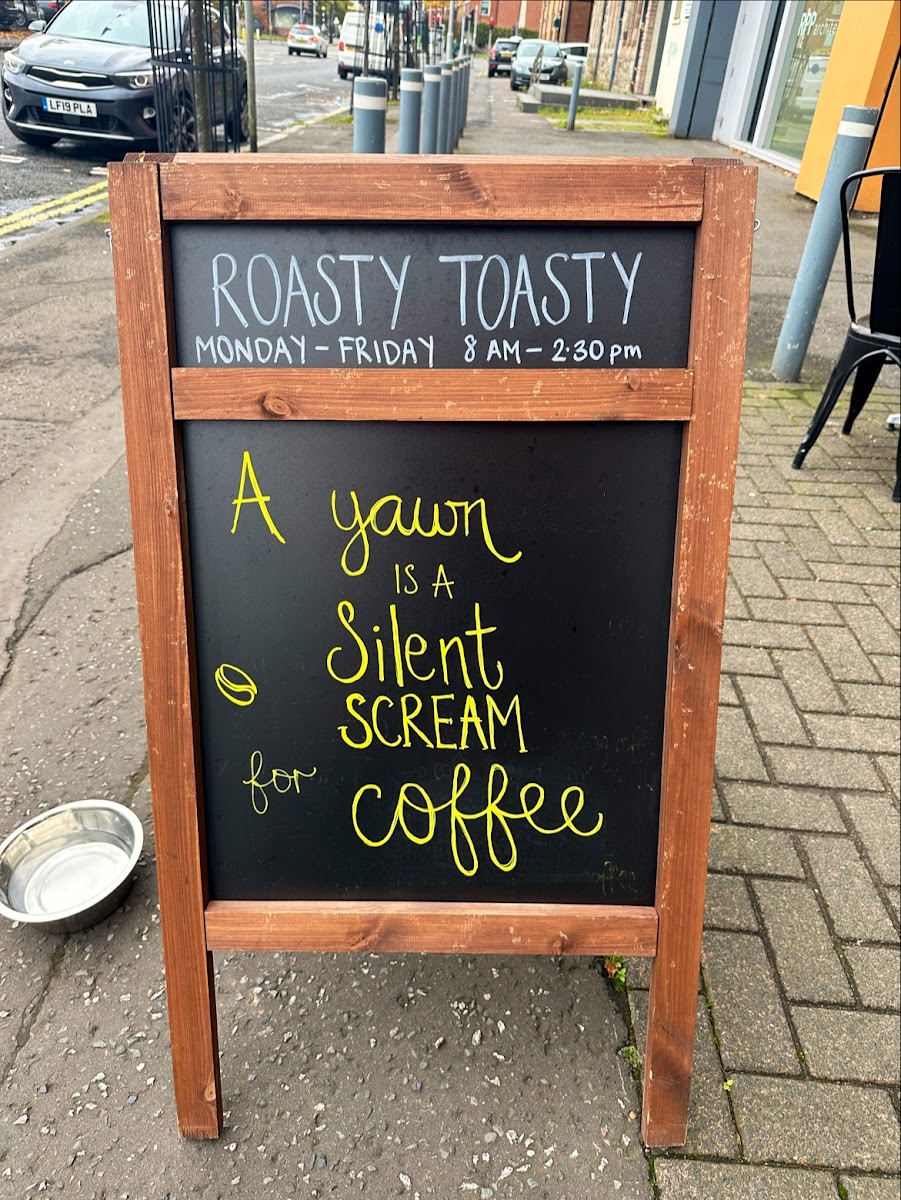 LF19 PLA
ROASTY TOASTY
MONDAY – FRIDAY 8 AM – 2·30 pm
A yawn
IS A
Silent
SCREAM
for
coffee